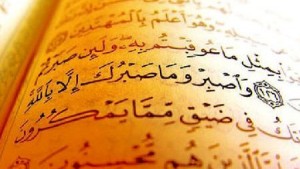 وَهُوَ أَعْلَمُ بِالْمُهْتَدِينَ
بِمِثْلِ مَا عُوقِبْتُم بِهِ وَلَئِن صَبَرْتُمْ
﴿١٢٦﴾ وَاصْبِرْ وَمَا صَبْرُكَ إِلَّا بِاللَّهِ
فِي ضَيْقٍ مِّمَّا يَمْكُرُونَ
الَّذِينَ هُم مُّحْسِنُونَ